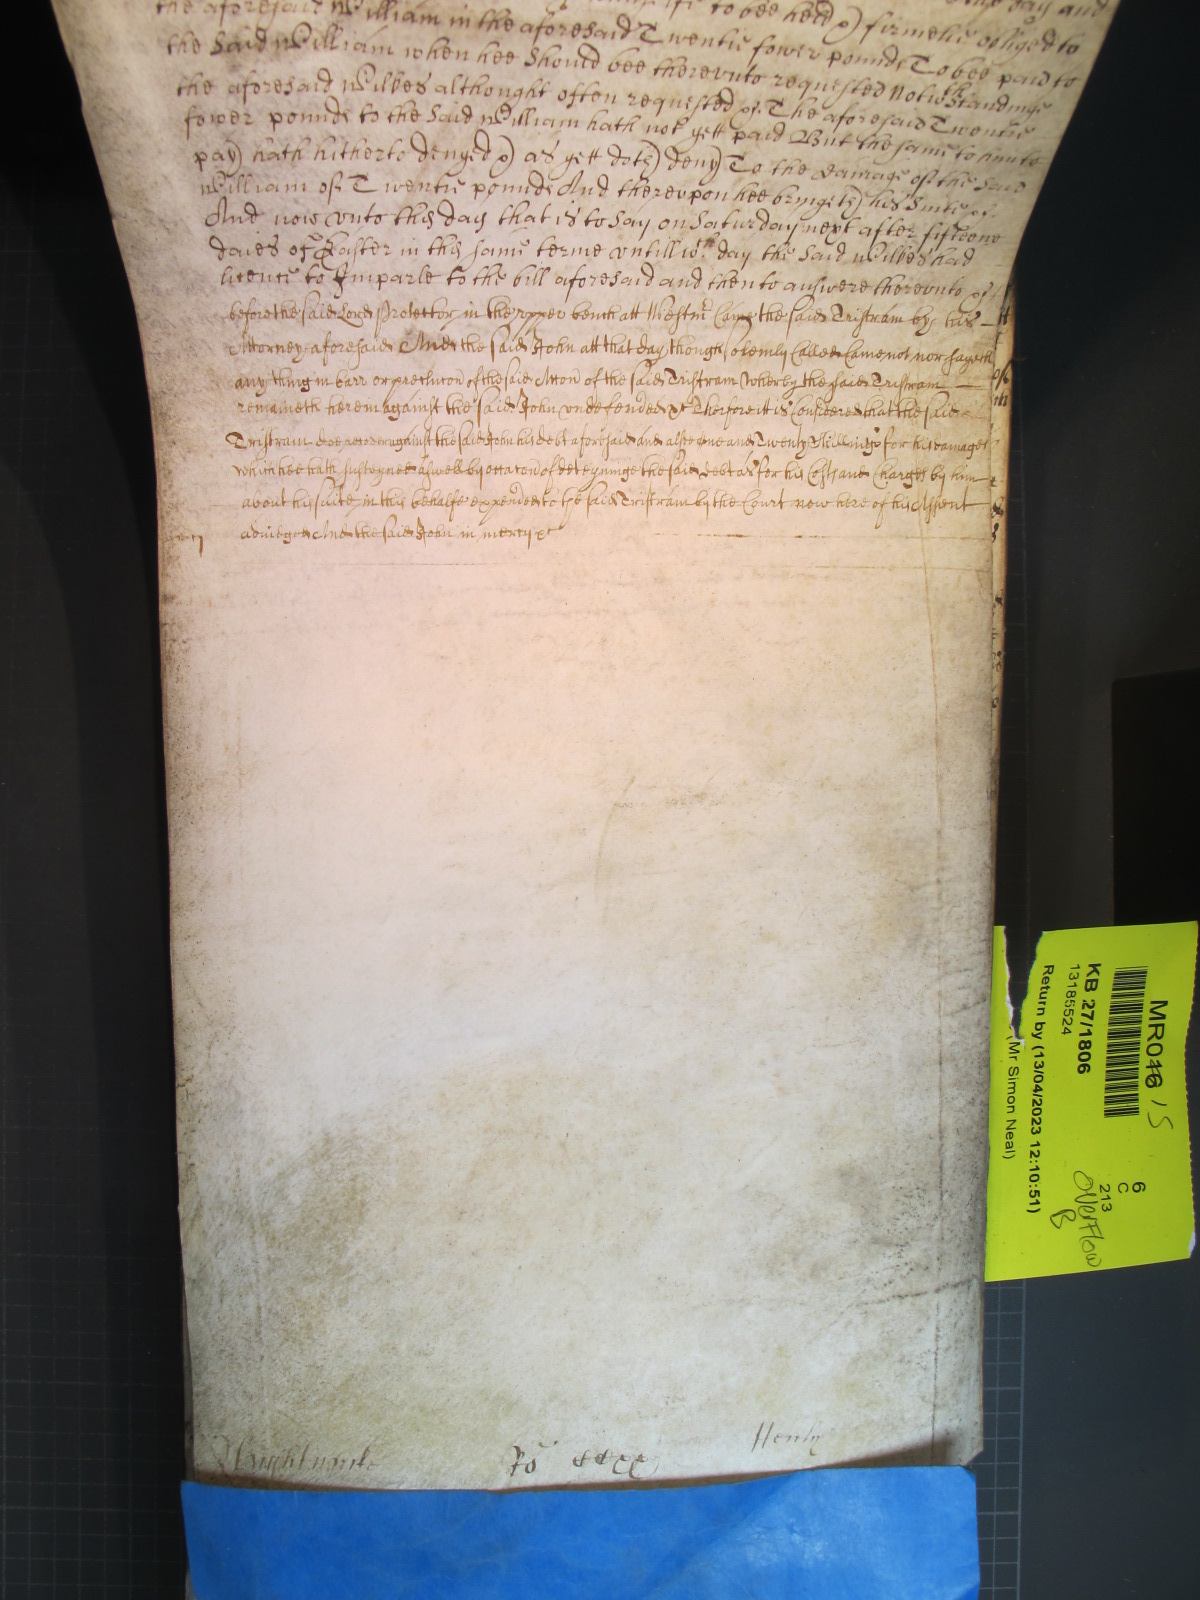 the aforesaid William in the aforesaid Twentie fower pounds To bee paid to
the said William when hee should bee therevnto requested Notwithstandinge
the aforesaid Wilbes althought often requested &c The aforesaid Twentie
fower pounds to the said William hath not yett paid But the same to him to
pay hath hitherto denyed as yett doth deny To the damage of the said
William of Twentie pounds And therevpon hee bringeth his suite &c
And now vnto this day that is to say on Saturday next after fifteene
daies of Easter in this same terme vntill wch day the said Wilbes had
licence to Imparle to the bill aforesaid and then to answere therevnto &c
before the said Lord Protector in the vpper bench att Westmr Came the said Tristram by his
Attorney aforesaid And the said John att that day though solemly called Came not nor sayeth
any thing in barr or preclucon of the said Accon of the said Tristram Whereby the said Tristram
remaineth herein against the said John vndefended &c Therfore it is Considered that the said
Tristram doe recover against the said John his debt aforesaid and alsoe one and Twenty shillings for his damages
which hee hath susteyned aswell by occacon of deteyninge the said debt as for his Costs and Charges by him
about his suite in this behalfe expended to the said Tristram by the Court now here of his Assent
adiudged And the said John in mercy &c
Henly
Ro CCxx
MR046 15
KB 27/1806
13185524
Return by (13/04/2023 12:10:51)
(Mr Simon Neal)
6
C
213
Overflow
B